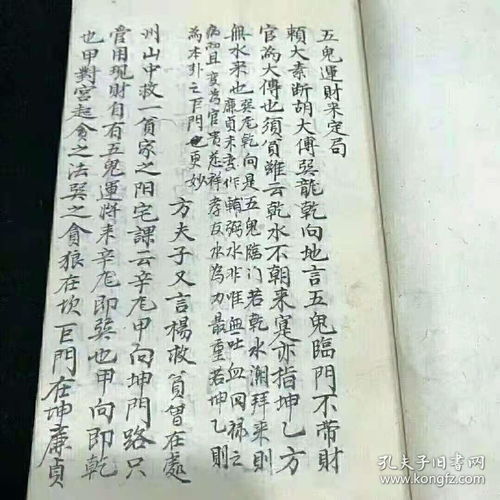 五鬼運財来定局
賴大素断胡大傅巽龍乾向地言五鬼臨門不帶財
官為大傅也須負雖云乾水不朝来寔亦指坤乙方
無水来也巽庀乾向是五鬼臨门若乾水潮拜来則
病而且廉貞未变作輔弼水非惟無吐血回禄之
变為官贵慈祥孝友水為力最重若坤乙則
為本卦之巨門也更妙
方夫子又言楊救貧曾在處
州山中救一貧家之阳宅課云辛庀甲向坤門路只
管用现財自有五鬼運将来辛庀即巽也甲向即乾
也甲對宮起貪之法巽之貪狼在坎巨門在坤廉貞
孔夫子旧书网
www.kongfz.com